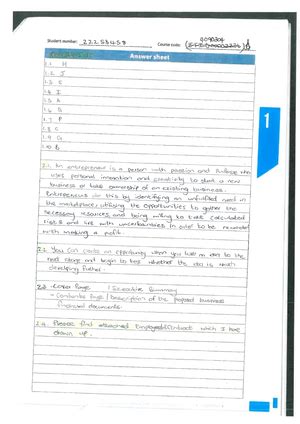 Student number: 22253458 Course code:
Answer sheet
1.1 H
1.2 J
1.3 E
1.4 I
1.5 A
1.6
1.7 F
1.8 C
1.9 G
1.10 B
1
2.1 An entrepreneur is a person with passion and purpose who
uses personal innovation and creativity to start a new
business or take ownership of an existing business.
Entrepreneurs do this by identifying an unfulfilled need in
the marketplace, utilising the opportunities to gather the
necessary resources and being willing to take calculated
risks and live with uncertainties in order to be rewarded
with making a profit.
2.2 You can create an opportunity when you take an idea to the
next stage and begin to test whether the idea is worth
developing further.
2.3 - Cover Page / Executive Summary
- Contents Page / Description of the proposed business
financial documents
2.4 Please find attached Employment Contract which I have
drawn up.